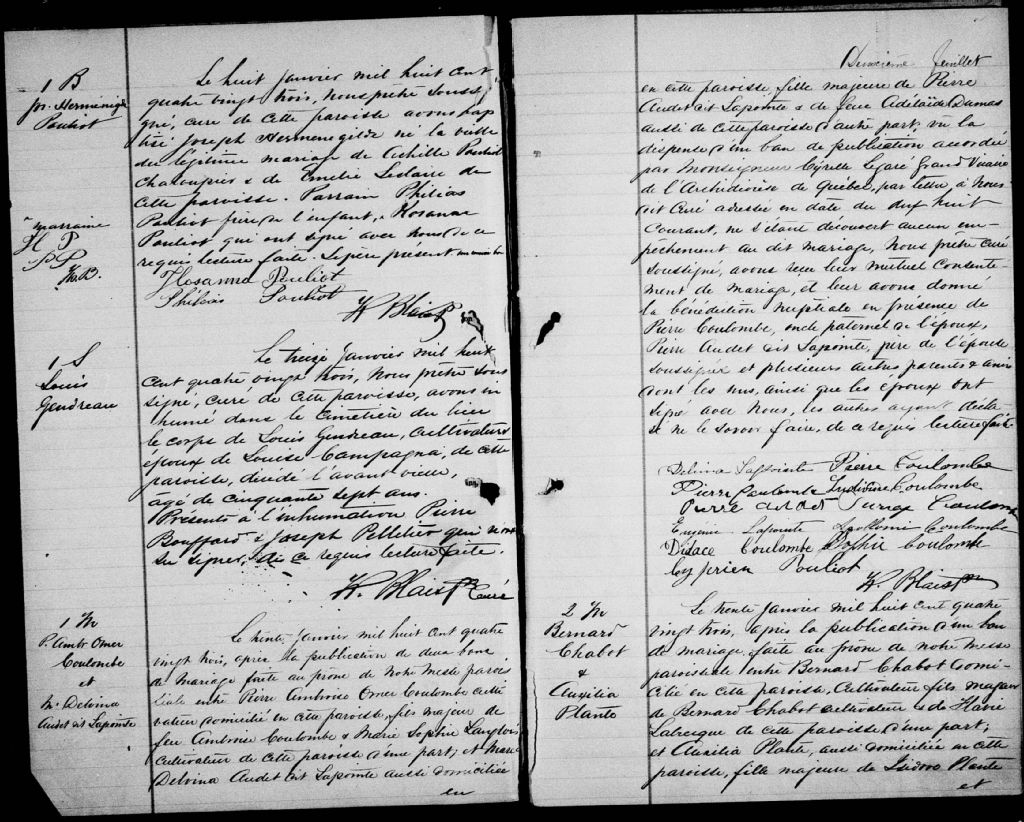 1 B
Jos. Herménégil
Pouliot
Le huit janvier mil huit cent
quatre vingt trois, nous prêtre souss
gné, curé de cette paroisse avons bap
tisé Joseph Hermenegilde né la veille
du légitime mariage de Achille Pouliot
Chaloupier & de Emélie Leclaire de
cette paroisse. Parrain Philias
marraine
Pouliot frère de l'enfant, & Rosanna
H P
Pouliot qui ont signé avec nous de ce
P P
requis lecture faite. Le père présent
H. B.
Hosanna Pouliot
Philias Pouliot
H Blais Ptr
1 S
Louis
Gendreau
Le treize janvier mil huit
cent quatre vingt trois, nous prêtre sous
signé, curé de cette paroisse, avons in
humé dans le cimetière du lieu
le corps de Louis Gendreau, cultivateur
époux de Louise Campagna, de cette
paroisse, décédé l'avant veille,
âgé de cinquante sept ans.
Présents à l'inhumation Pierre
Bouffard & Joseph Pelletier qui n'ont
su signer, de ce requis lecture faite.
H. Blais Ptr Curé
1 M
P. Ambr Omer
Coulombe
et
M. Delvina
Audet dit Lapointe
Le trente janvier mil huit cent quatre
vingt trois, après la publication de deux bans
de mariage faite au prône de notre messe paroi
ssiale entre Pierre Ambroise Omer Coulombe culti
vateur domicilié en cette paroisse, fils majeur de
feu Ambroise Coulombe & Marie Sophie Langlois
cultivateur de cette paroisse d'une part; et Marie
Delvina Audet dit Lapointe aussi domiciliée
en
Deuxième feuillet
en cette paroisse, fille majeure de Pierre
Audet dit Lapointe & de feue Adélaïde Dumas
aussi de cette paroisse d'autre part; vu la
dispense d'un ban de publication accordée
par Monseigneur Cyrille Legaré Grand Vicaire
de l'Archidiocèse de Québec, par lettre, à Nous
dit Curé adressée en date du dix huit
Courant, ne s'étant découvert aucun em-
pêchement au dit mariage, Nous prêtre curé
soussigné, avons reçu leur mutuel consente-
ment de mariage, et leur avons donné
la bénédiction nuptiale en présence de
Pierre Coulombe, oncle paternel de l'époux,
Pierre Audet dit Lapointe, père de l'épouse
soussignés et plusieurs autres parents & amis
dont les uns, ainsi que les époux ont
signé avec Nous, les autres ayant décla-
ré ne le savoir faire, de ce requis lecture faite.
Delvina Lapointe Pierre Coulombe
Pierre Coulombe Coulombe
Pierre Audet Coulombe
Eugénie Lapointe Coulombe
Didace Coulombe Sophie Coulombe
Cyprien Pouliot
H. Blais Ptr
2 M
Bernard
Chabot
&
Auxilia
Plante
Le trente janvier mil huit cent quatre
vingt trois, après la publication d'un ban
de mariage, faite au prône de notre messe
paroissiale entre Bernard Chabot domi-
cilié en cette paroisse, cultivateur fils majeur
de Bernard Chabot cultivateur & de Flavie
Labrecque de cette paroisse d'une part;
et Auxilia Plante, aussi domiciliée en cette
paroisse, fille majeure de Isidore Plante
et